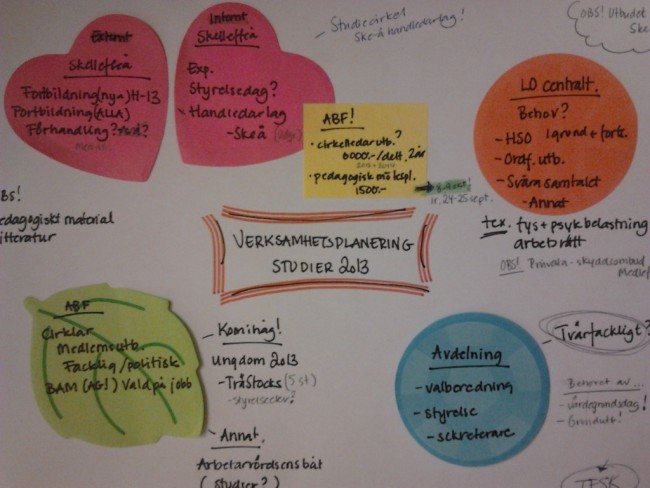 Externt
Skellefteå
Fortbildning (nya) H-13
Fortbildning (ALLA)
Förhandling?
Internt
Skellefteå
Exp.
Styrelsedag?
- Handledarlag
- Skeå
- Studiecirkel
Ske-å Handledarlag!
OBS! Utbudet
Ske
ABF!
• cirkelledarutb.?
6000:-/delt. 2 år
• pedagogisk
1500:-
ir. 24-25 sept.
LO centralt.
Behov?
- HSO 1 grund + forts.
- Ordf. utb.
- Svåra samtalet
- Annat
tex. fys + psyk belastning
arbetsrätt
OBS! Privata - skyddsombud
BS!
edagogiskt material
itteratur
VERKSAMHETSPLANERING
STUDIER 2013
ABF
Cirklar
Medlemsutb.
Facklig/politisk
BAM (AG!) Våld på jobb
- Komihåg!
Ungdom 2013
- TräStocks (5 st)
- styrelseelev?
- Annat.
(studier?)
Avdelning
- valberedning
- styrelse
- sekreterare
- Tvärfackligt?
Behovet av...
- värdegrundsdag!
- Grundutb!